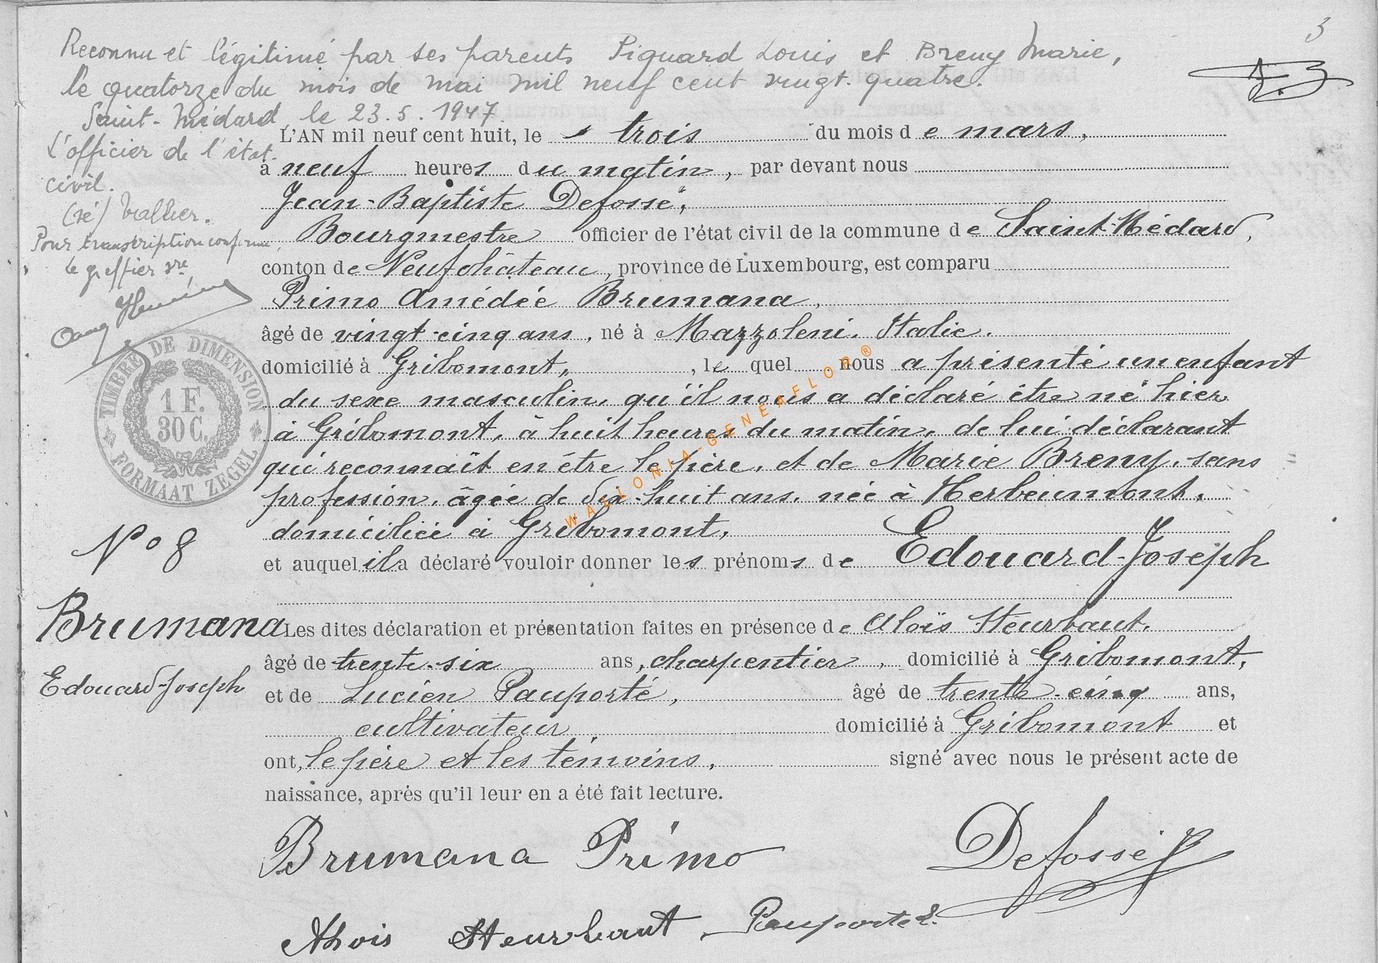 3
Reconnu et légitimé par ses parents Piquard Louis et Breny Marie,
le quatorze du mois de mai mil neuf cent vingt-quatre.
Saint-Médard le 23.5.1947.
L'officier de l'état
civil.
(sé)
Pour transcription conforme
le greffier
TIMBRE DE DIMENSION
1 F.
30 C.
FORMAAT ZEGEL
N° 8
Brumana
Edouard-Joseph
L'AN mil neuf cent huit, le trois du mois de mars,
à neuf heures du matin, par devant nous
Jean-Baptiste Defosse,
Bourgmestre officier de l'état civil de la commune de Saint-Médard,
conton de Neufchâteau, province de Luxembourg, est comparu
Primo Amédée Brumana,
âgé de vingt-cinq ans, né à Mazzoleni, Italie.
domicilié à Gribomont, , le quel nous a présenté un enfant
du sexe masculin, qu'il nous a déclaré être né hier
à Gribomont, à huit heures du matin, de lui déclarant
qui reconnaît en être le père, et de Marie Breny, sans
profession, âgée de dix-huit ans, née à Herbeumont,
domiciliée à Gribomont,
et auquel il a déclaré vouloir donner les prénoms de Edouard-Joseph
Les dites déclaration et présentation faites en présence de Aloïs Steurbaut,
âgé de trente-six ans, charpentier, domicilié à Gribomont,
et de Lucien Pauporté, âgé de trente-cinq ans,
cultivateur, domicilié à Gribomont et
ont, le père et les témoins, signé avec nous le présent acte de
naissance, aprés qu'il leur en a été fait lecture.
Brumana Primo
Defosse
Aloïs Steurbaut
Pauporté L.
WALLONIA-GENEAFLOR®